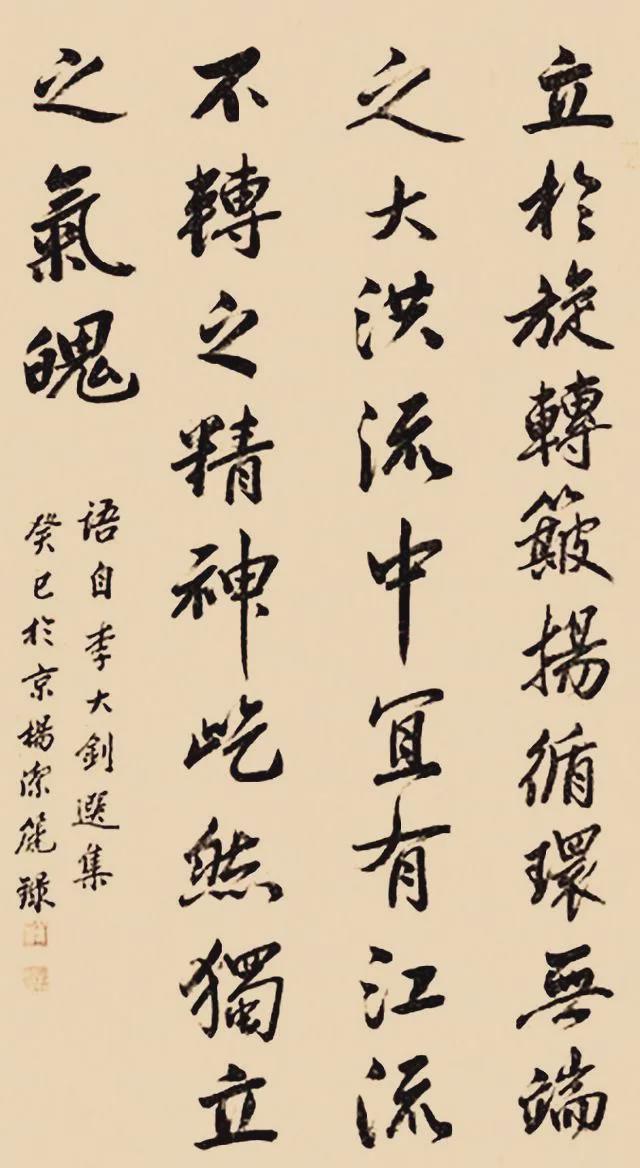 立於旋轉簸揚循環無端
之大洪流中宜有江流
不轉之精神屹然獨立
之氣魄
语自李大釗選集
癸巳於京楊潔篪録